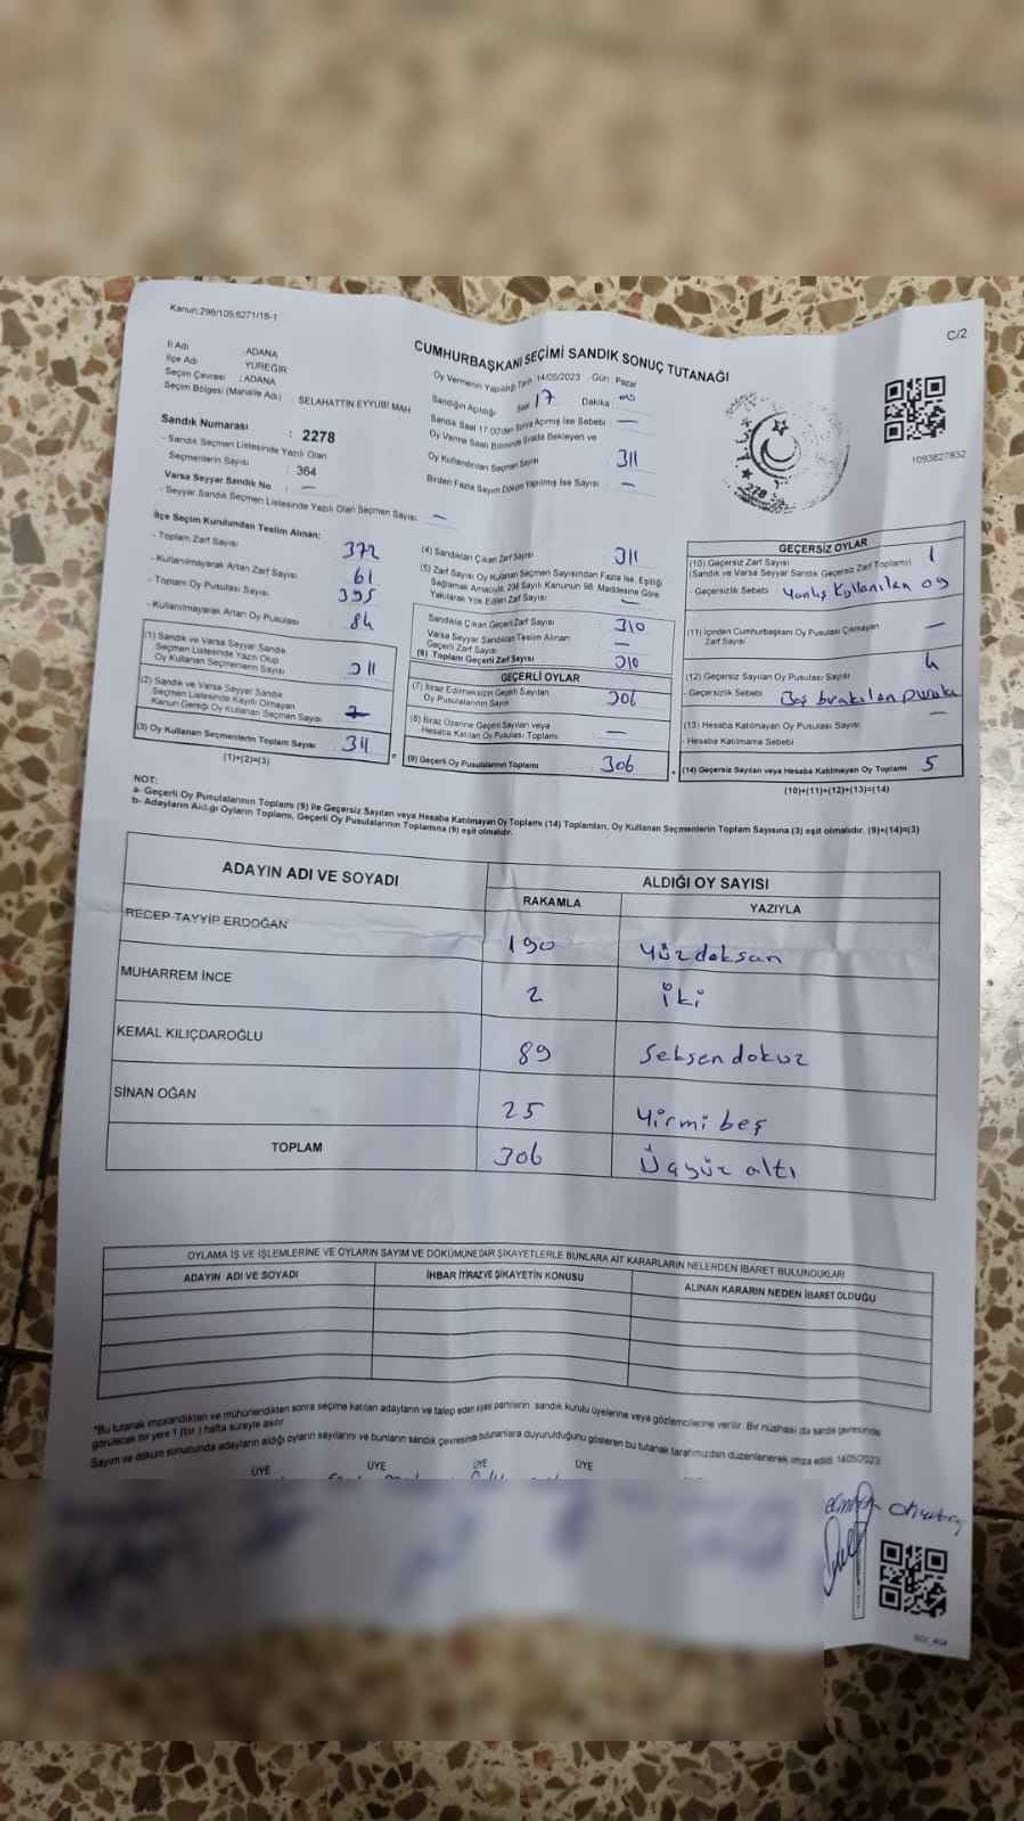 Kanun:298/105;6271/18-1
C/2
CUMHURBAŞKANI SEÇİMİ SANDIK SONUÇ TUTANAĞI
İl Adı : ADANA
İlçe Adı YÜREĞİR
Seçim Çevresi : ADANA
Seçim Bölgesi (Mahalle Adı) SELAHATTİN EYYUBİ MAH
Sandık Numarası : 2278
- Sandık Seçmen Listesinde Yazılı Olan
Seçmenlerin Sayısı : 364
Varsa Seyyar Sandık No : —
- Seyyar Sandık Seçmen Listesinde Yazılı Olan Seçmen Sayısı —
Oy Vermenin Yapıldığı Tarih 14/05/2023 Gün : Pazar
Sandığın Açıldığı Saat 17 Dakika 00
Sandık Saat 17.00'den Sonra Açılmış İse Sebebi —
Oy Verme Saati Bitiminde Sırada Bekleyen ve
Oy Kullandırılan Seçmen Sayısı 311
Birden Fazla Sayım Döküm Yapılmış İse Sayısı —
1093827832
İlçe Seçim Kurulundan Teslim Alınan:
- Toplam Zarf Sayısı 372
- Kullanılmayarak Artan Zarf Sayısı 61
- Toplam Oy Pusulası Sayısı 395
- Kullanılmayarak Artan Oy Pusulası 84
(1) Sandık ve Varsa Seyyar Sandık
Seçmen Listesinde Yazılı Olup
Oy Kullanan Seçmenlerin Sayısı 311
(2) Sandık ve Varsa Seyyar Sandık
Seçmen Listesinde Kayıtlı Olmayan
Kanun Gereği Oy Kullanan Seçmen Sayısı
(3) Oy Kullanan Seçmenlerin Toplam Sayısı 311
(1)+(2)=(3)
(4) Sandıktan Çıkan Zarf Sayısı 311
(5) Zarf Sayısı Oy Kullanan Seçmen Sayısından Fazla İse, Eşitliği
Sağlamak Amacıyla 298 Sayılı Kanunun 98. Maddesine Göre
Yakılarak Yok Edilen Zarf Sayısı —
Sandıkta Çıkan Geçerli Zarf Sayısı 310
Varsa Seyyar Sandıktan Teslim Alınan
Geçerli Zarf Sayısı —
(6) Toplam Geçerli Zarf Sayısı 310
GEÇERLİ OYLAR
(7) İtiraz Edilmeksizin Geçerli Sayılan
Oy Pusulalarının Sayısı 306
(8) İtiraz Üzerine Geçerli Sayılan veya
Hesaba Katılan Oy Pusulası Toplamı —
(9) Geçerli Oy Pusulalarının Toplamı 306
GEÇERSİZ OYLAR
(10) Geçersiz Zarf Sayısı 1
(Sandık ve Varsa Seyyar Sandık Geçersiz Zarf Toplamı)
- Geçersizlik Sebebi Yanlış Kullanılan oy
(11) İçinden Cumhurbaşkanı Oy Pusulası Çıkmayan
Zarf Sayısı —
(12) Geçersiz Sayılan Oy Pusulası Sayısı 4
- Geçersizlik Sebebi Boş bırakılan pusula
(13) Hesaba Katılmayan Oy Pusulası Sayısı —
- Hesaba Katılmama Sebebi
(14) Geçersiz Sayılan veya Hesaba Katılmayan Oy Toplamı 5
(10)+(11)+(12)+(13)=(14)
NOT:
a- Geçerli Oy Pusulalarının Toplamı (9) ile Geçersiz Sayılan veya Hesaba Katılmayan Oy Toplamı (14) Toplamları, Oy Kullanan Seçmenlerin Toplam Sayısına (3) eşit olmalıdır. (9)+(14)=(3)
b- Adayların Aldığı Oyların Toplamı, Geçerli Oy Pusulalarının Toplamına (9) eşit olmalıdır.
ADAYIN ADI VE SOYADI
ALDIĞI OY SAYISI
RAKAMLA YAZIYLA
RECEP TAYYİP ERDOĞAN 190 Yüzdoksan
MUHARREM İNCE 2 İki
KEMAL KILIÇDAROĞLU 89 Seksen dokuz
SİNAN OĞAN 25 Yirmi beş
TOPLAM 306 Üçyüz altı
OYLAMA İŞ VE İŞLEMLERİNE VE OYLARIN SAYIM VE DÖKÜMÜNE DAİR ŞİKAYETLERLE BUNLARA AİT KARARLARIN NELERDEN İBARET BULUNDUKLARI
ADAYIN ADI VE SOYADI İHBAR İTİRAZ VE ŞİKAYETİN KONUSU ALINAN KARARIN NEDEN İBARET OLDUĞU
"Bu tutanak imzalandıktan ve mühürlendikten sonra seçime katılan adayların ve talep eden siyasi partilerin sandık kurulu üyelerine veya gözlemcilerine verilir. Bir nüshası da sandık çevresinde
görülecek bir yere 1 (bir) hafta süreyle asılır
Sayım ve döküm sonucunda adayların aldığı oyların sayılarını ve bunların sandık çevresinde bulunanlara duyurulduğunu gösteren bu tutanak tarafımızdan düzenlenerek imza edildi. 14/05/2023
ÜYE ÜYE ÜYE ÜYE